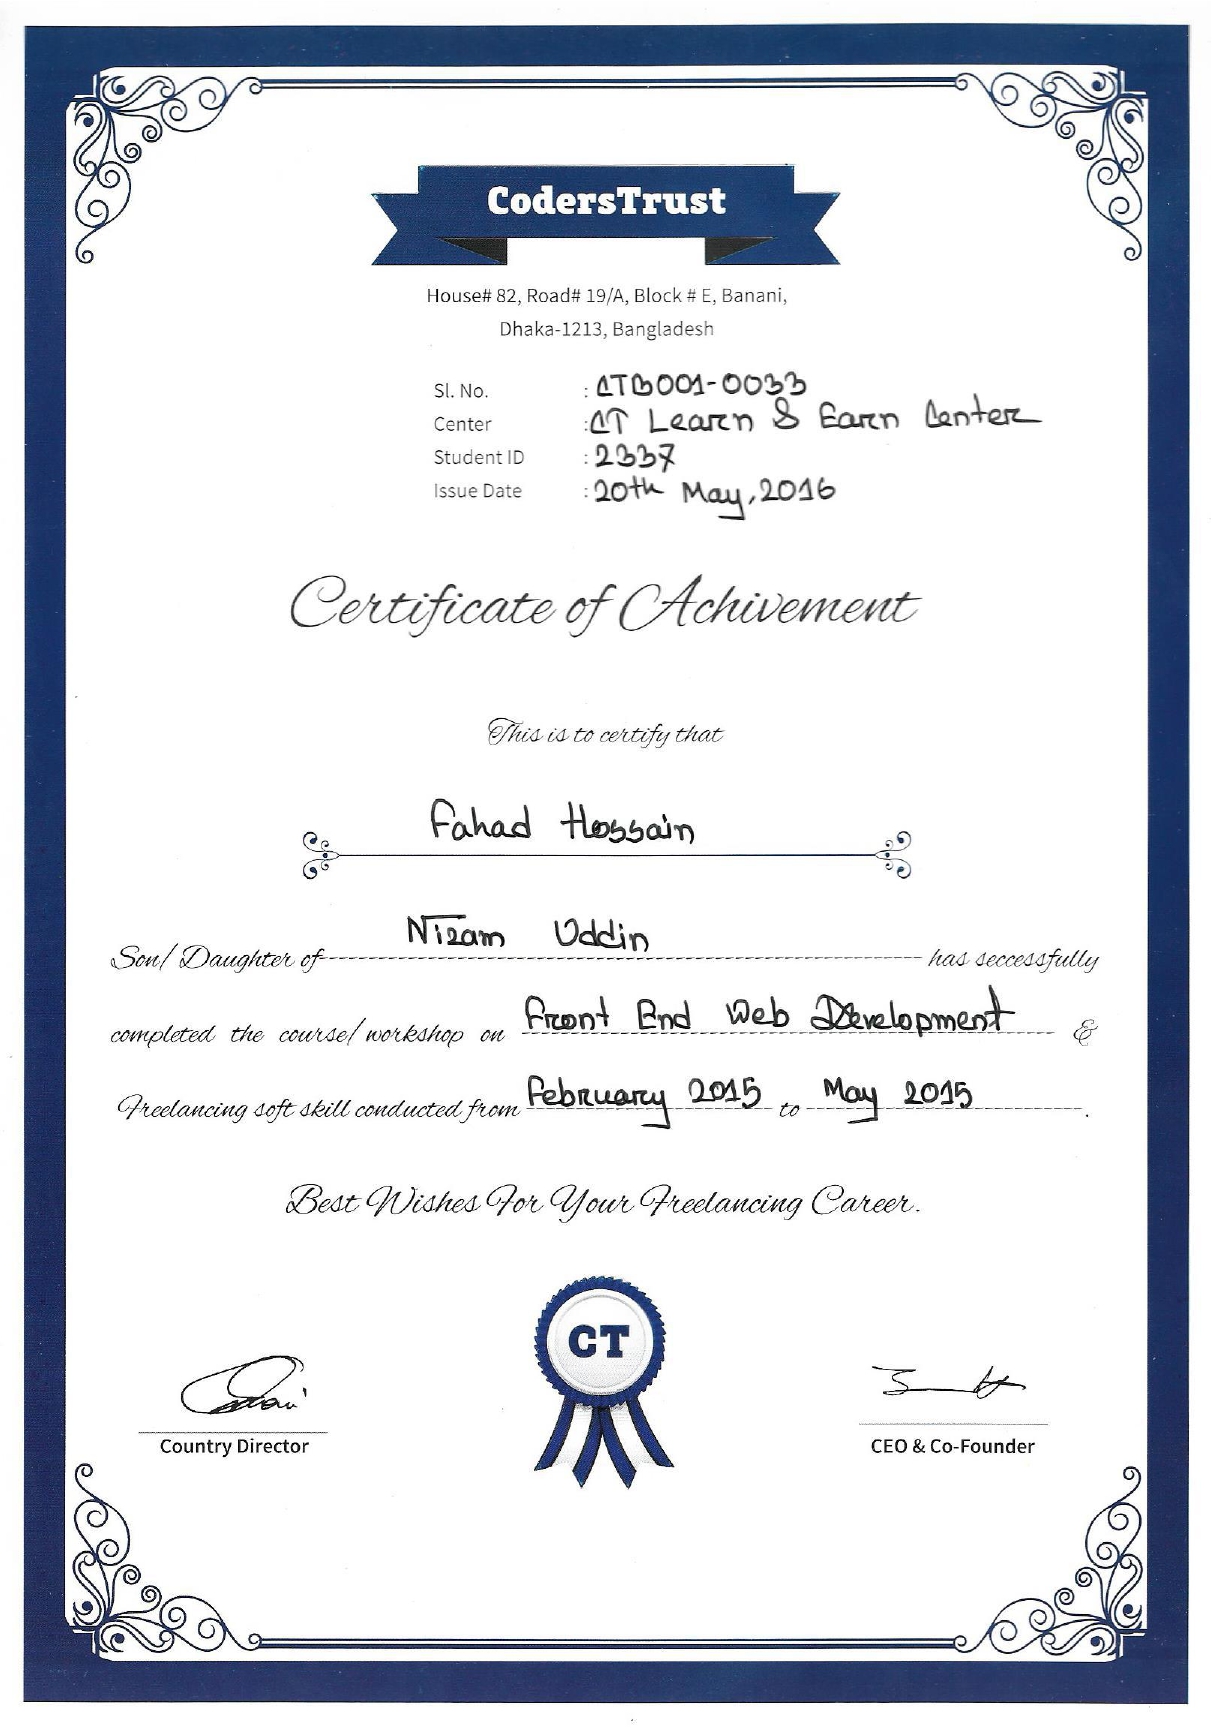 CodersTrust
House# 82, Road# 19/A, Block # E, Banani,
Dhaka-1213, Bangladesh
Sl. No. : CTB001-0033
Center : CT Learn & Earn Center
Student ID : 2337
Issue Date : 20th May, 2016
Certificate of Achivement
This is to certify that
Fahad Hossain
Son/ Daughter of Nizam Uddin has seccessfully
completed the course/ workshop on Front End Web Development &
Freelancing soft skill conducted from February 2015 to May 2015.
Best Wishes For Your Freelancing Career.
CT
Country Director CEO & Co-Founder